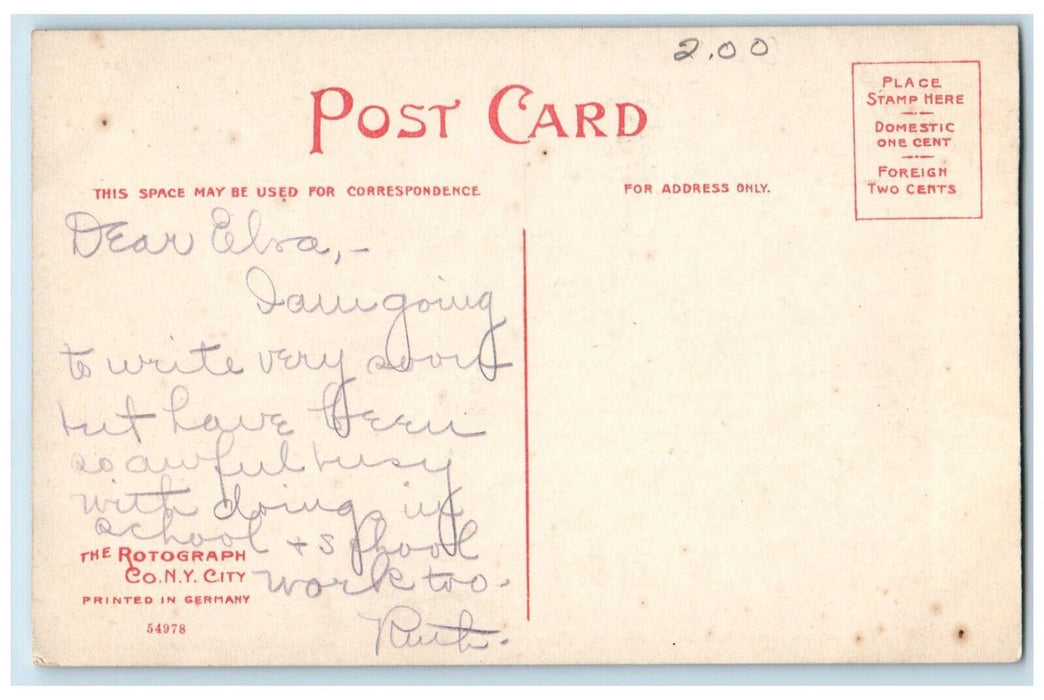 2.00
POST CARD
PLACE
STAMP HERE
DOMESTIC
ONE CENT
FOREIGN
TWO CENTS
THIS SPACE MAY BE USED FOR CORRESPONDENCE.
FOR ADDRESS ONLY.
Dear Elva,-
I am going
to write very soon
but have been
so awful busy
with doing in
school + school
work too.
Ruth.
THE ROTOGRAPH
CO. N.Y. CITY
PRINTED IN GERMANY
54978